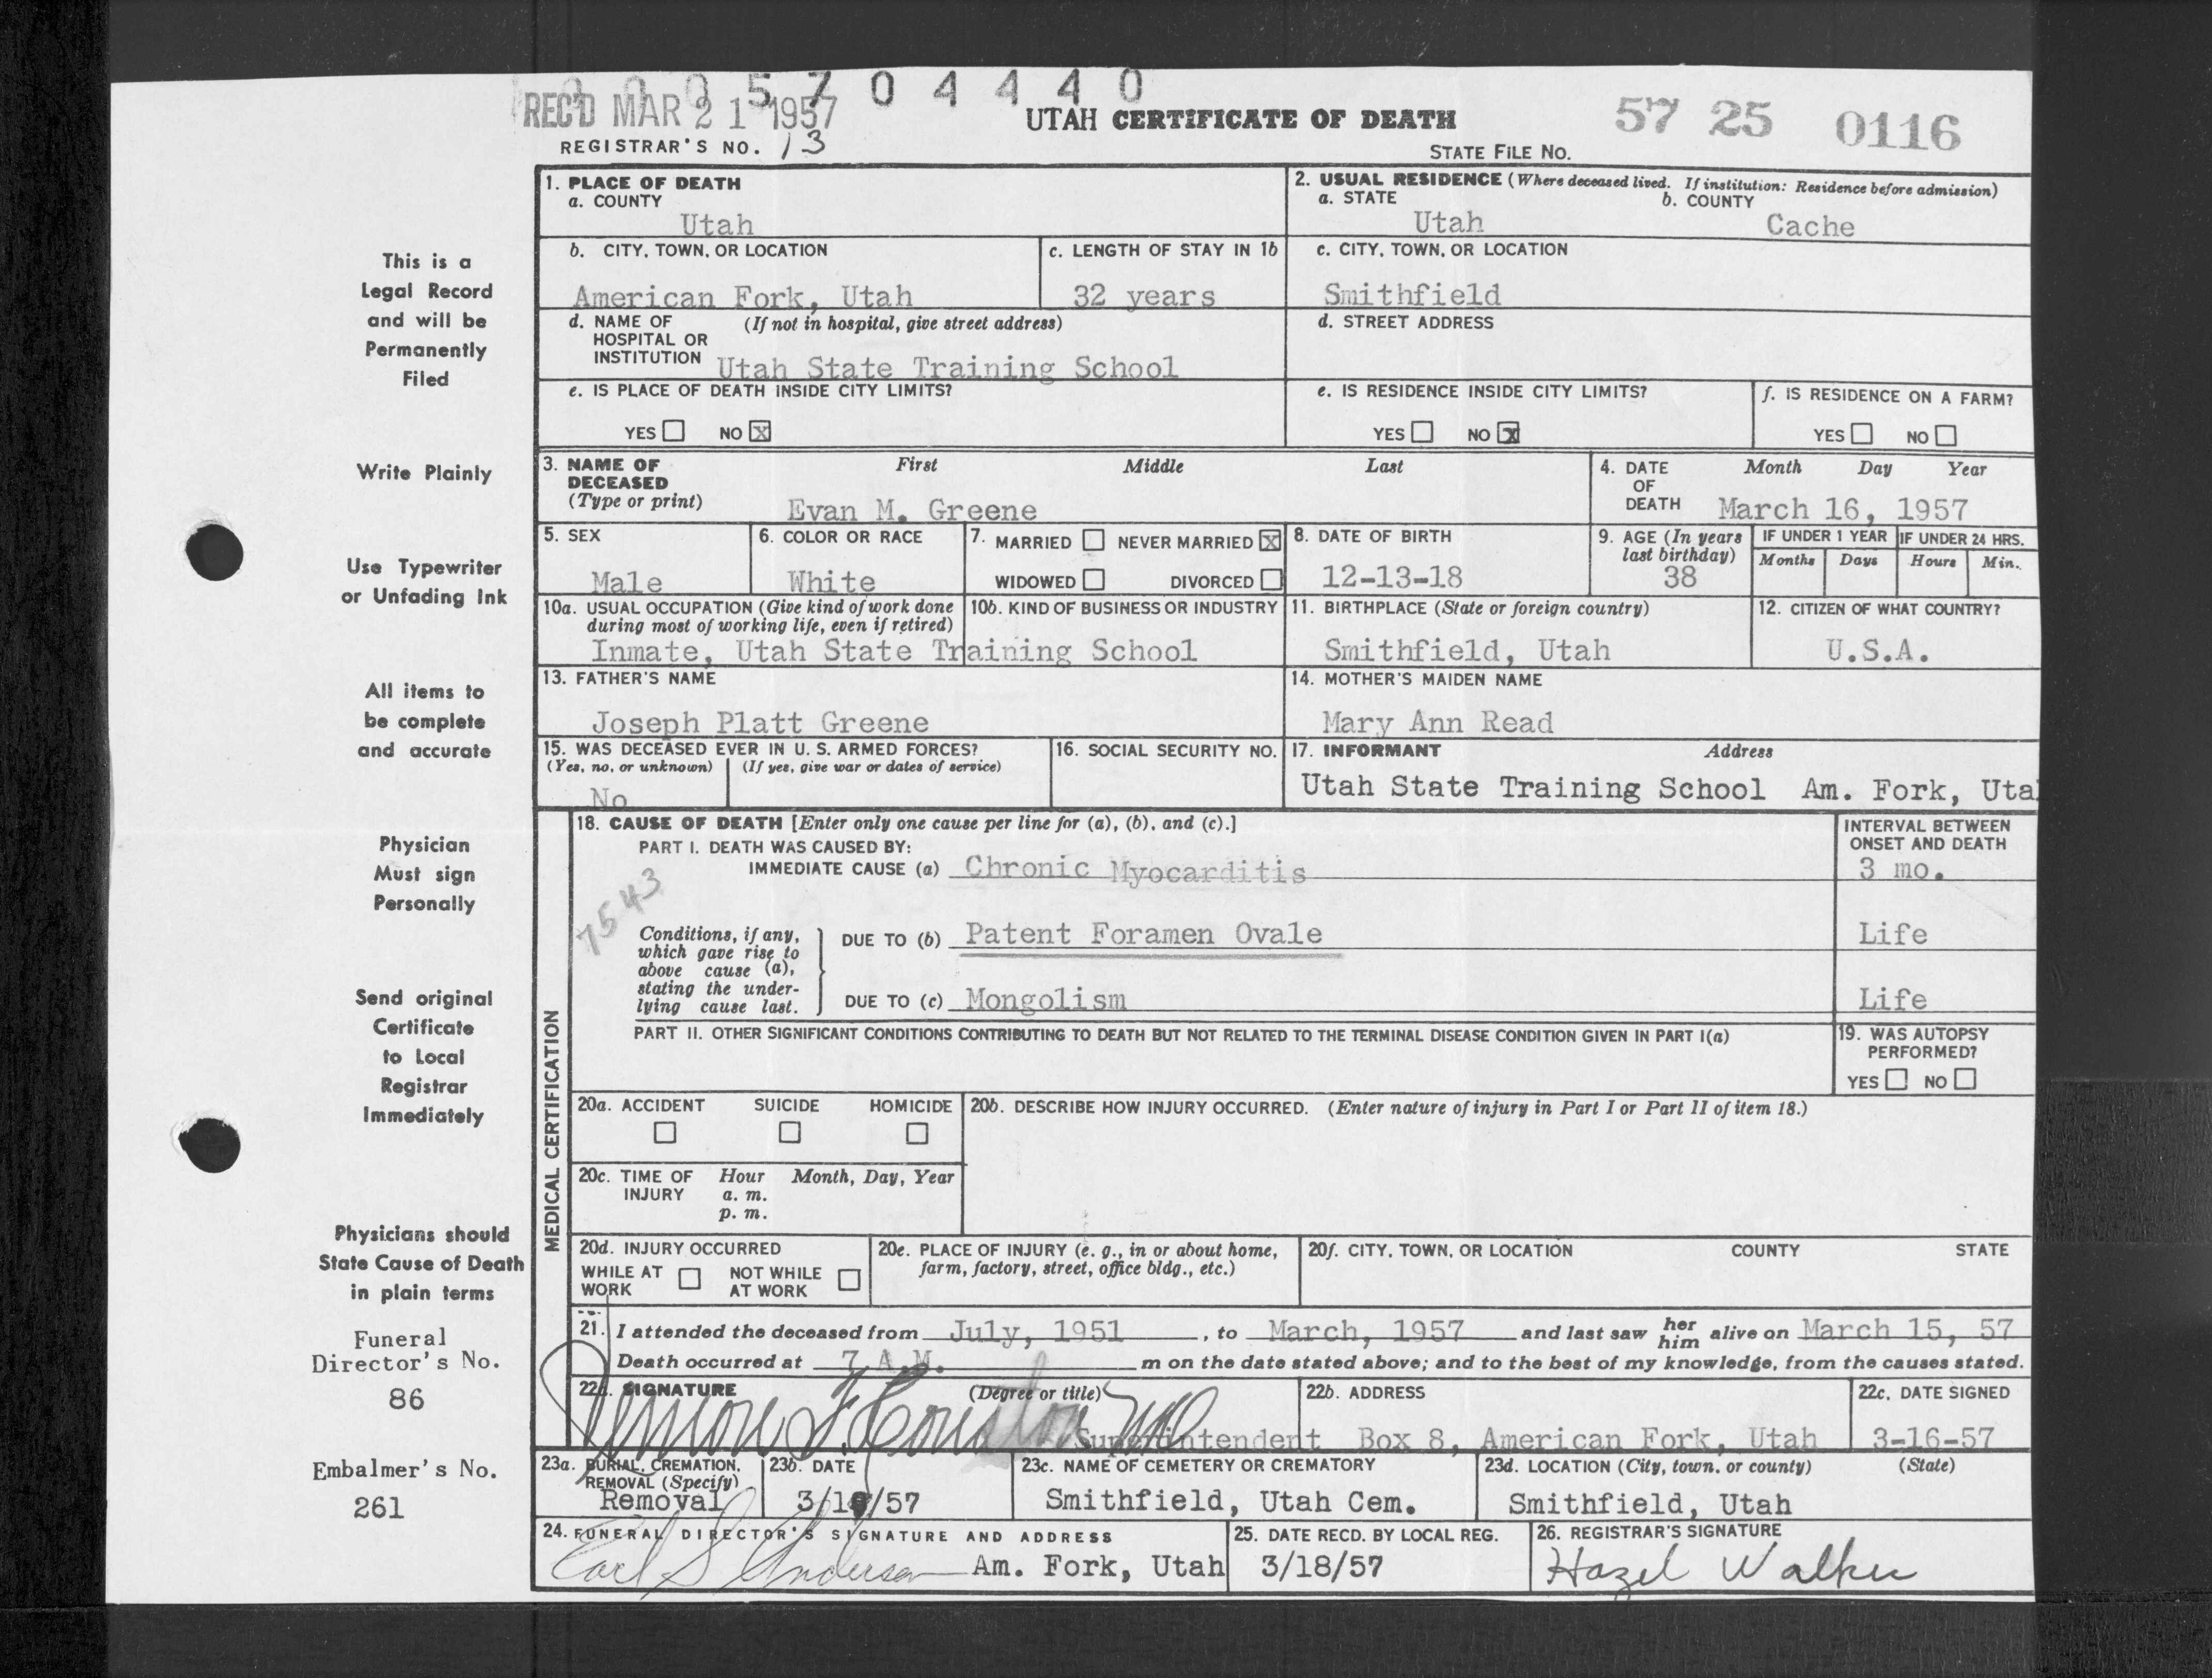 0 0 0 5 7 0 4 4 4 0
REC'D MAR 21 1957
UTAH CERTIFICATE OF DEATH
57 25 0116
REGISTRAR'S NO. 13
STATE FILE NO.
This is a
Legal Record
and will be
Permanently
Filed
Write Plainly
Use Typewriter
or Unfading Ink
All items to
be complete
and accurate
Physician
Must sign
Personally
Send original
Certificate
to Local
Registrar
Immediately
Physicians should
State Cause of Death
in plain terms
Funeral
Director's No.
86
Embalmer's No.
261
1. PLACE OF DEATH
a. COUNTY
Utah
2. USUAL RESIDENCE (Where deceased lived. If institution: Residence before admission)
a. STATE
Utah
b. COUNTY
Cache
b. CITY, TOWN, OR LOCATION
American Fork, Utah
c. LENGTH OF STAY IN 1b
32 years
c. CITY, TOWN, OR LOCATION
Smithfield
d. NAME OF (If not in hospital, give street address)
HOSPITAL OR
INSTITUTION Utah State Training School
d. STREET ADDRESS
e. IS PLACE OF DEATH INSIDE CITY LIMITS?
YES NO X
e. IS RESIDENCE INSIDE CITY LIMITS?
YES NO X
f. IS RESIDENCE ON A FARM?
YES NO
3. NAME OF First Middle Last
DECEASED
(Type or print) Evan M. Greene
4. DATE Month Day Year
OF
DEATH March 16, 1957
5. SEX
Male
6. COLOR OR RACE
White
7. MARRIED NEVER MARRIED X
WIDOWED DIVORCED
8. DATE OF BIRTH
12-13-18
9. AGE (In years
last birthday)
38
IF UNDER 1 YEAR
Months Days
IF UNDER 24 HRS.
Hours Min.
10a. USUAL OCCUPATION (Give kind of work done
during most of working life, even if retired)
10b. KIND OF BUSINESS OR INDUSTRY
Inmate, Utah State Training School
11. BIRTHPLACE (State or foreign country)
Smithfield, Utah
12. CITIZEN OF WHAT COUNTRY?
U.S.A.
13. FATHER'S NAME
Joseph Platt Greene
14. MOTHER'S MAIDEN NAME
Mary Ann Read
15. WAS DECEASED EVER IN U. S. ARMED FORCES?
(Yes, no, or unknown) (If yes, give war or dates of service)
No
16. SOCIAL SECURITY NO.
17. INFORMANT Address
Utah State Training School Am. Fork, Uta
MEDICAL CERTIFICATION
18. CAUSE OF DEATH [Enter only one cause per line for (a), (b), and (c).]
PART I. DEATH WAS CAUSED BY:
IMMEDIATE CAUSE (a) Chronic Myocarditis
INTERVAL BETWEEN
ONSET AND DEATH
3 mo.
7543
Conditions, if any,
which gave rise to
above cause (a),
stating the under-
lying cause last.
DUE TO (b) Patent Foramen Ovale
Life
DUE TO (c) Mongolism
Life
PART II. OTHER SIGNIFICANT CONDITIONS CONTRIBUTING TO DEATH BUT NOT RELATED TO THE TERMINAL DISEASE CONDITION GIVEN IN PART I(a)
19. WAS AUTOPSY
PERFORMED?
YES NO
20a. ACCIDENT SUICIDE HOMICIDE
20b. DESCRIBE HOW INJURY OCCURRED. (Enter nature of injury in Part I or Part II of item 18.)
20c. TIME OF Hour Month, Day, Year
INJURY a. m.
p. m.
20d. INJURY OCCURRED
WHILE AT NOT WHILE
WORK AT WORK
20e. PLACE OF INJURY (e. g., in or about home,
farm, factory, street, office bldg., etc.)
20f. CITY, TOWN, OR LOCATION COUNTY STATE
21. I attended the deceased from July, 1951, to March, 1957 and last saw her him alive on March 15, 57
Death occurred at 7 A.M. m on the date stated above; and to the best of my knowledge, from the causes stated.
22a. SIGNATURE (Degree or title)
Vernon F. Houston MD
Superintendent
22b. ADDRESS
Box 8, American Fork, Utah
22c. DATE SIGNED
3-16-57
23a. BURIAL, CREMATION,
REMOVAL (Specify)
Removal
23b. DATE
3/19/57
23c. NAME OF CEMETERY OR CREMATORY
Smithfield, Utah Cem.
23d. LOCATION (City, town, or county) (State)
Smithfield, Utah
24. FUNERAL DIRECTOR'S SIGNATURE AND ADDRESS
Earl S Anderson Am. Fork, Utah
25. DATE RECD. BY LOCAL REG.
3/18/57
26. REGISTRAR'S SIGNATURE
Hazel Walker